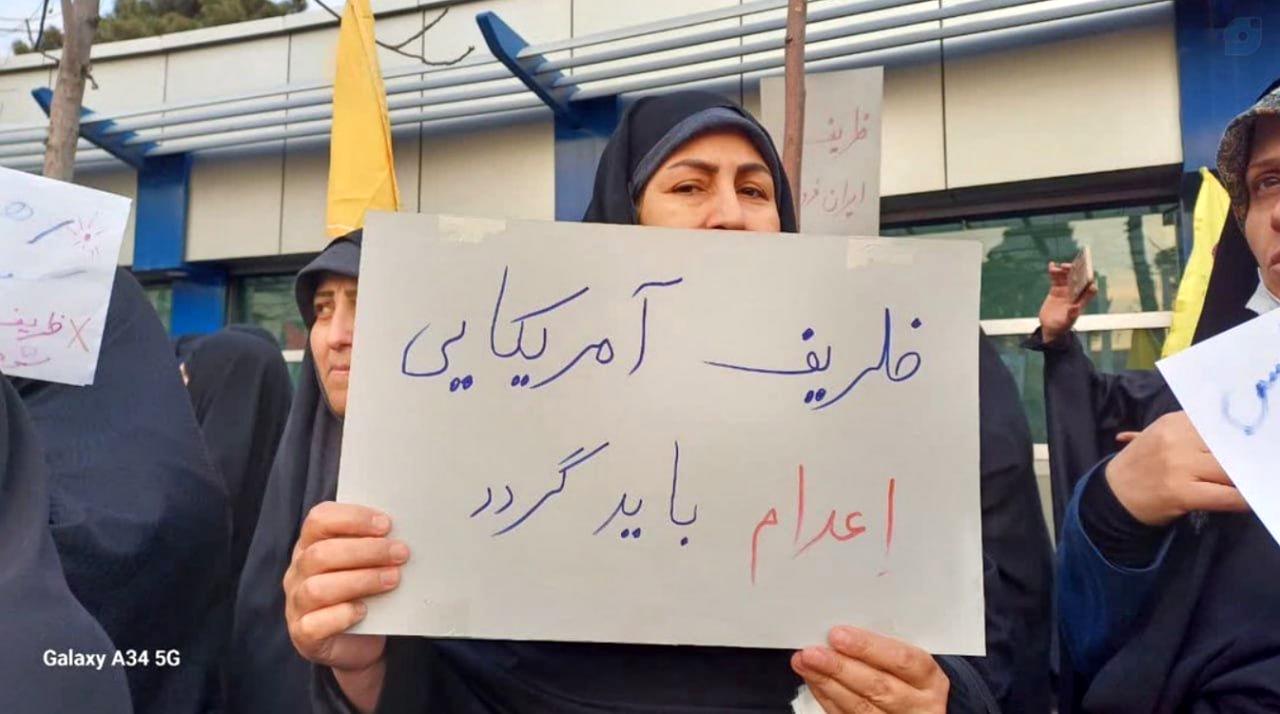 ظریف آمریکایی
اعدام باید گردد
ظریف
ایران
ظریف
Galaxy A34 5G